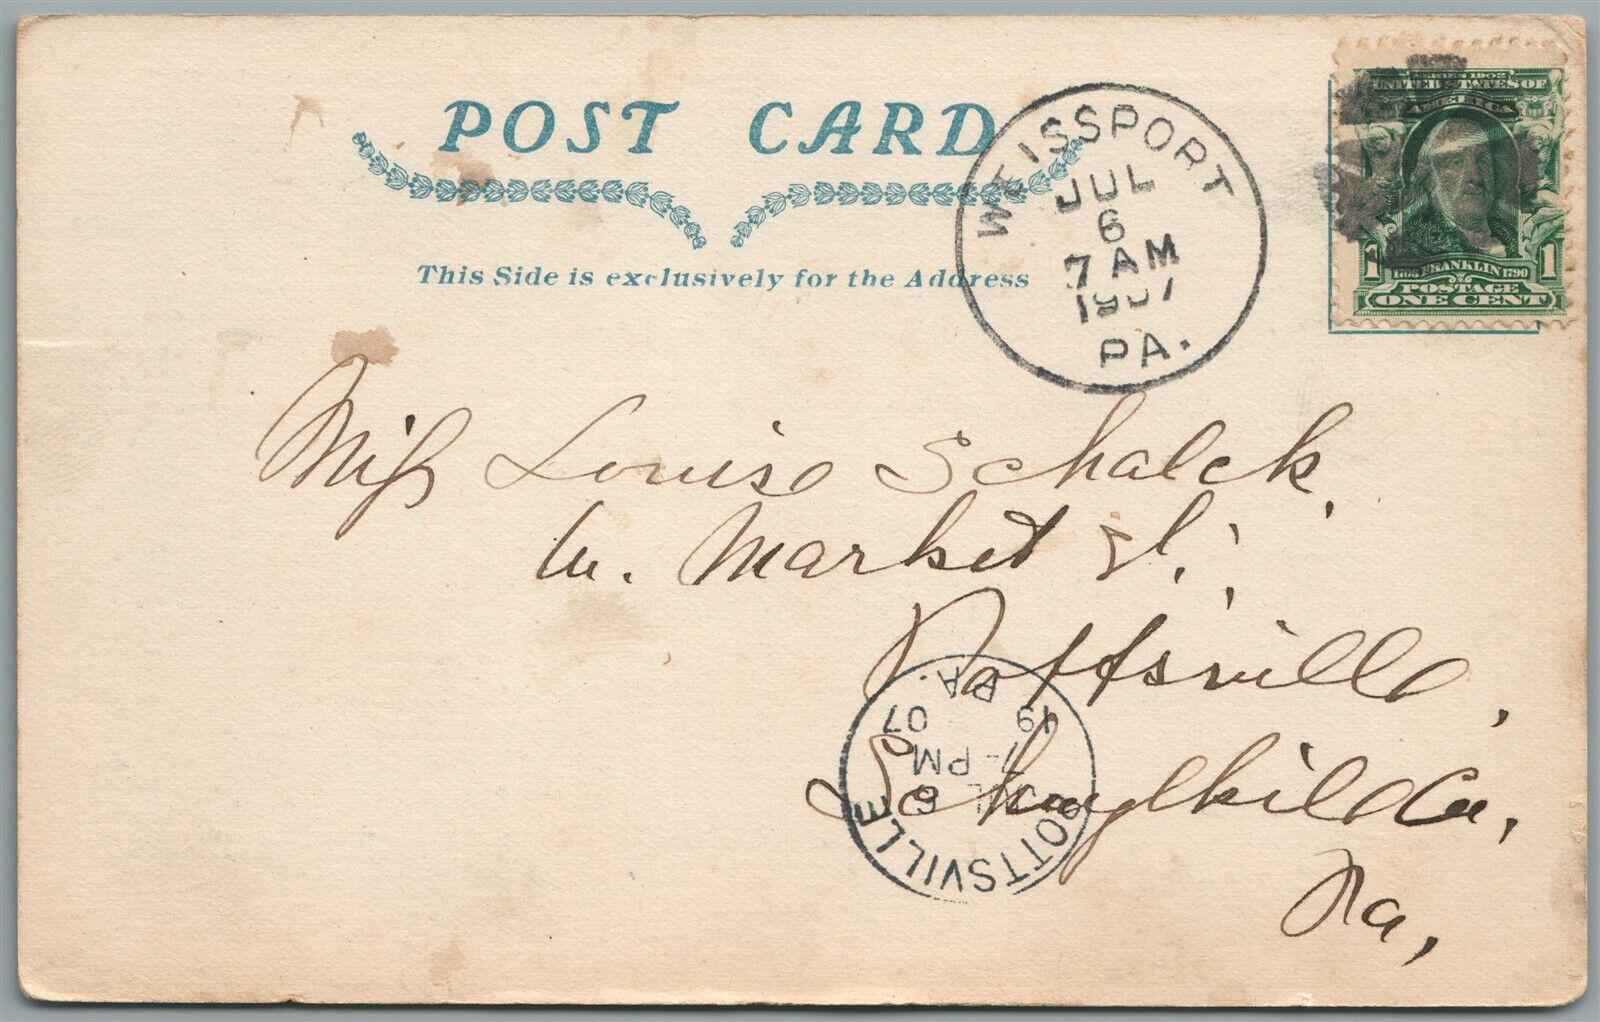 POST CARD
This Side is exclusively for the Address
WEISSPORT
JUL
6
7 AM
1907
PA.
SERIES 1902
UNITED STATES OF
AMERICA
1706 FRANKLIN 1790
1 1
POSTAGE
ONE CENT
Miss Louise Schalck,
W. Market St.,
Pottsville,
Schuylkill Co.,
Pa,
POTTSVILLE
JUL 6
7-PM
19 07
PA.